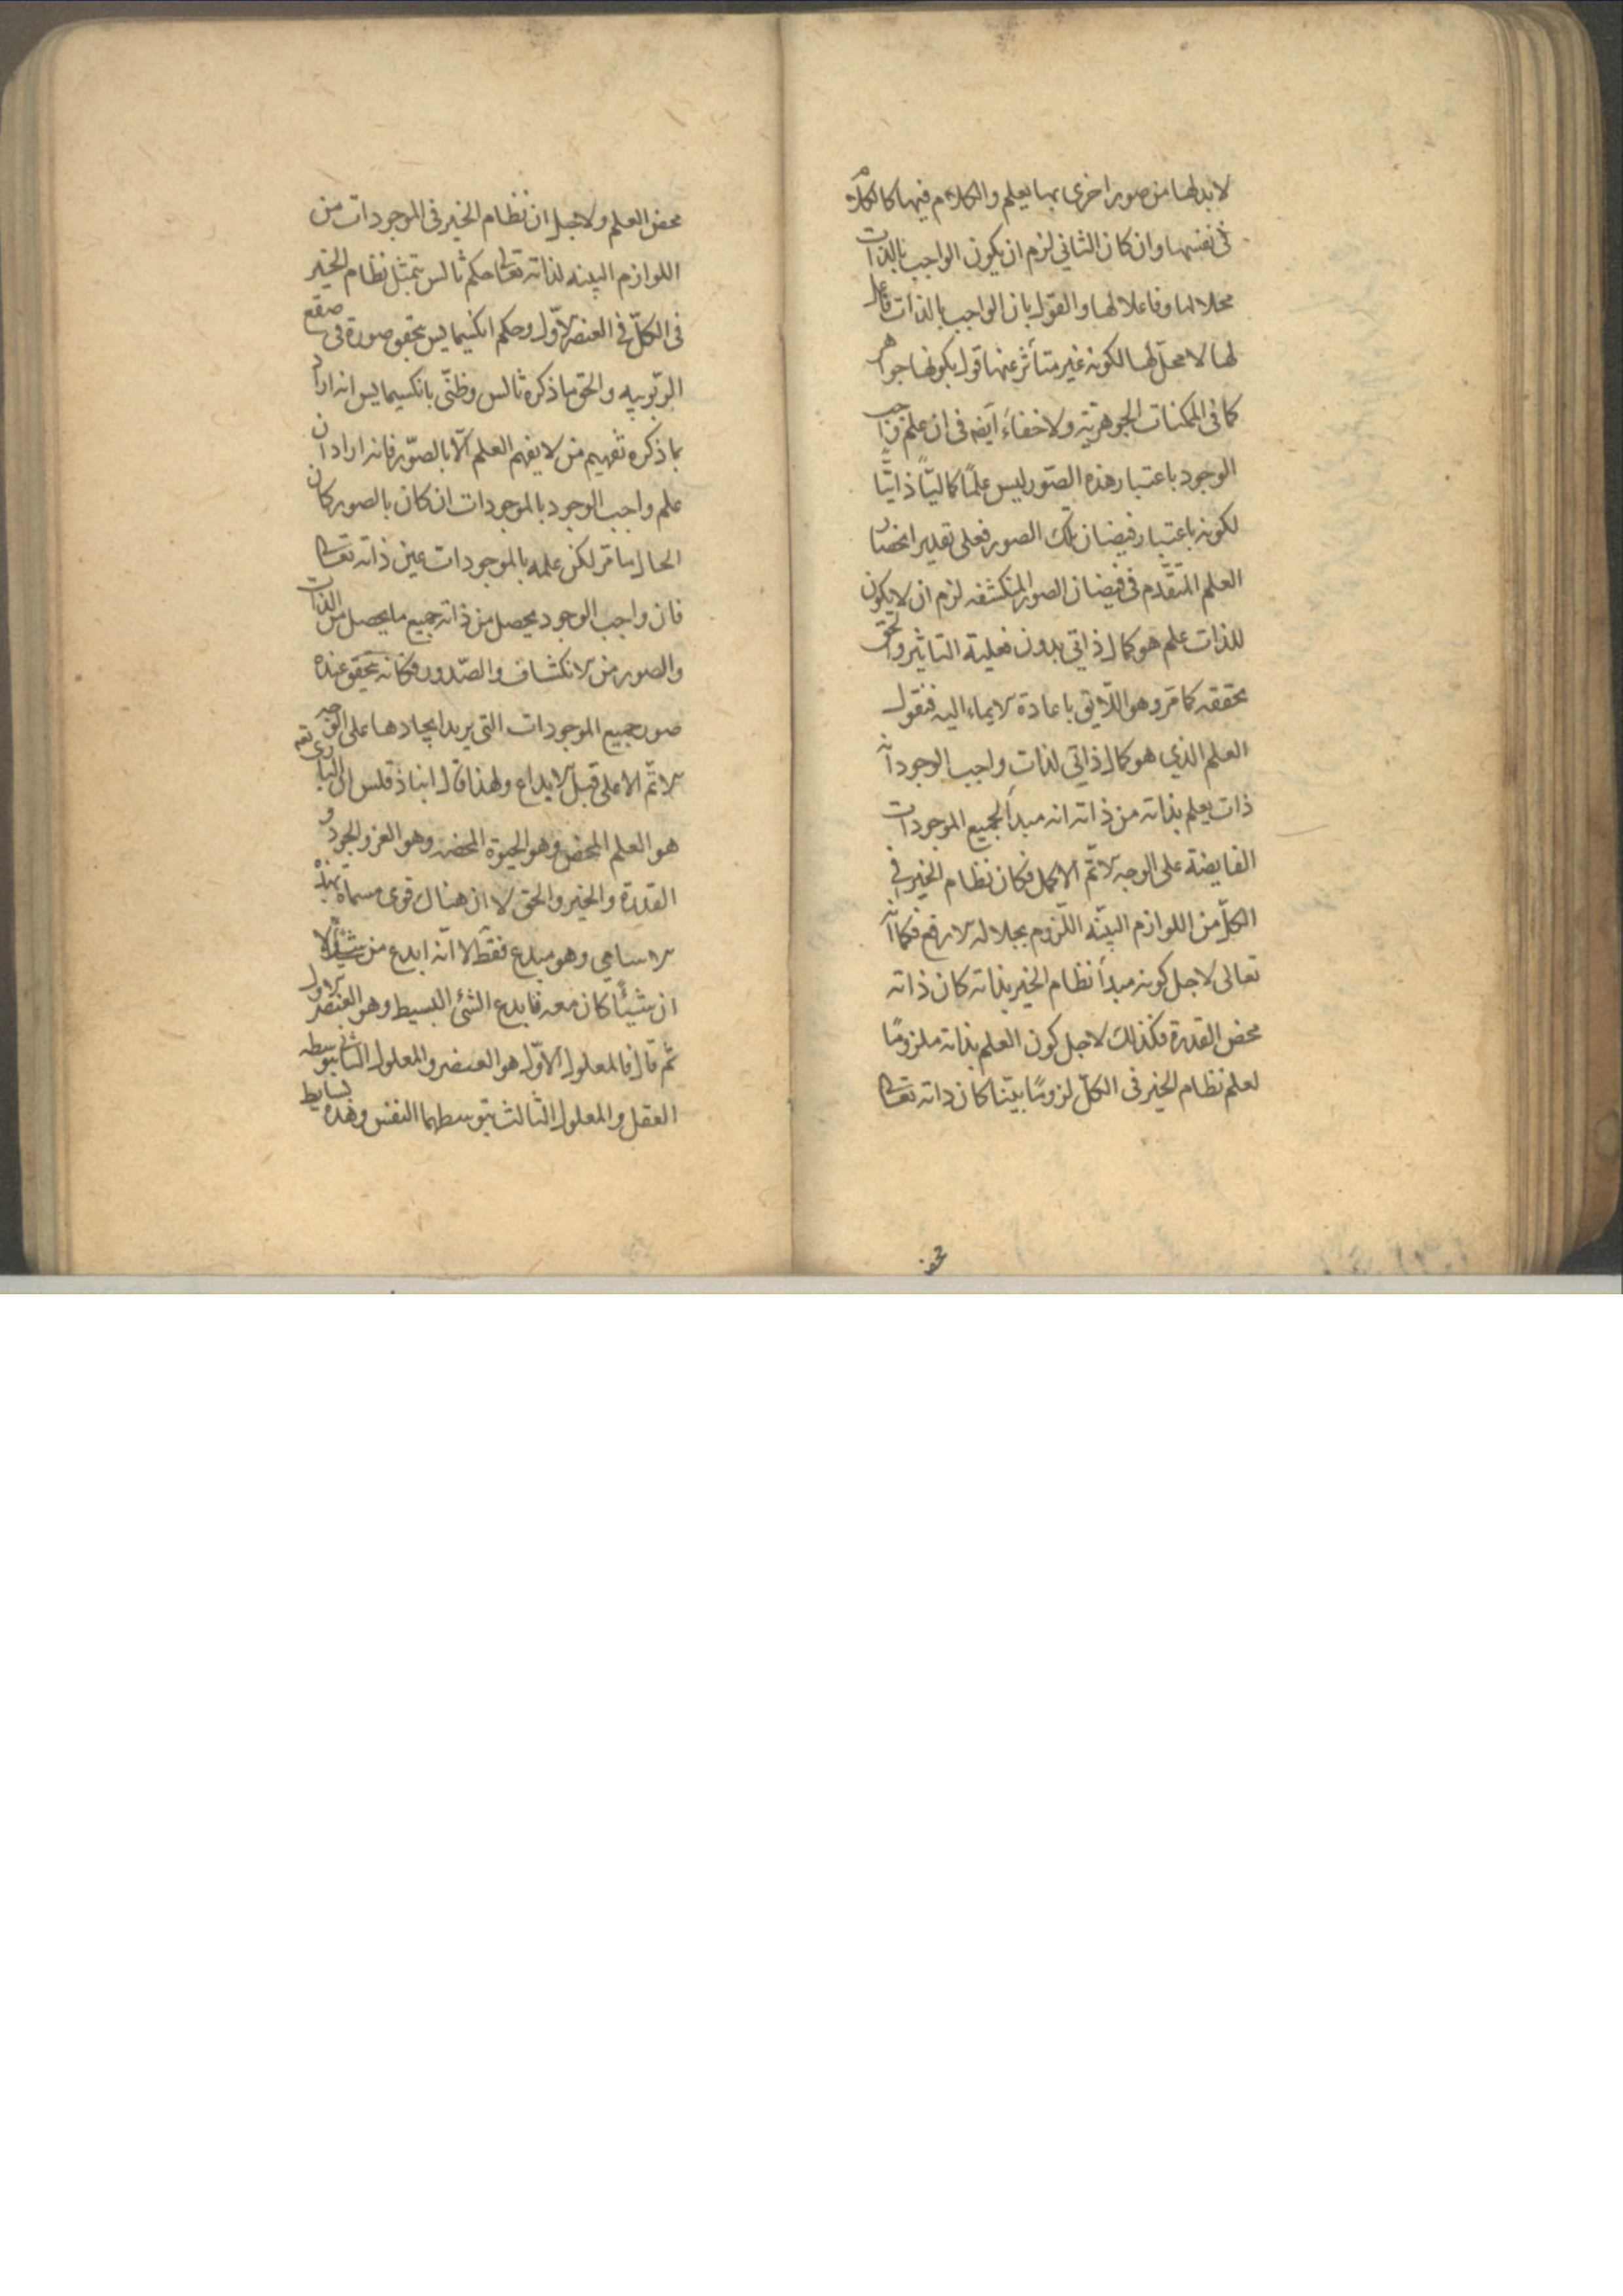 لا بد لها من صور اخرى بها يعلم والكلام فيها كالكلام
فى نفسها وان كان الثاني لزم ان يكون الواجب بالذات
محلا لها وفاعلا لها والقول بان الواجب بالذات فاعل
لها لا محل لها لكونه غير متأثر عنها قول بكونها جواهر
كما فى الممكنات الجوهرية ولا خفاء ايضا فى ان علم واجب
الوجود باعتبار هذه الصور ليس علمًا كماليًا ذاتيًا
لكونه باعتبار فيضان تلك الصور فعلى تقدير انحصار
العلم المتقدم فى فيضان الصور المنكشفه لزم ان لا يكون
للذات علم هو كمال ذاتي بدون فعلية التاثير و
تحققه كما مر وهو اللايق باعادة الايماء اليه فنقول
العلم الذي هو كمال ذاتي لذات واجب الوجود انه
ذات يعلم بذاته من ذاته انه مبدأ لجميع الموجودات
الفايضة على الوجه الاتم الاكمل فكان نظام الخير فى
الكل من اللوازم البينه اللزوم بجلاله الارفع فكما انه
تعالى لاجل كونه مبدأ نظام الخير بذاته كان ذاته
محض القدرة فكذلك لاجل كون العلم بذاته ملزومًا
لعلم نظام الخير فى الكل لزومًا بينا كان ذاته تعالى
محض
محض العلم ولاجل ان نظام الخير فى الموجودات من
اللوازم البينه لذاته تعالى حكم ثالس بتمثل نظام الخير
فى الكل فى العنصر الاول وحكم انكسيمايس بتحقق صورة فى صقع
الربوبيه والحق ما ذكره ثالس وظنى بانكسيمايس انه اراد
بما ذكره تفهيم من لا يفهم العلم الا بالصور فانه اراد ان
علم واجب الوجود بالموجودات ان كان بالصور كان
الحال ما مر لكن علمه بالموجودات عين ذاته تعالى
فان واجب الوجود يحصل من ذاته جميع ما يحصل من الذات
والصور من الانكشاف والصدور فكانه تحقق عنده
صور جميع الموجودات التى يريد ايجادها على الوجه
الاتم الاعلى قبل الابداع ولهذا قال انباذقلس ان البارى تعم
هو العلم المحض وهو الحيوة المحضه وهو العز والجود و
القدرة والخير والحق لا ان هناك قوى مسماة بهذه
الاسامي وهو مبدع فقط لا انه ابدع من شئ ولا
ان شيئًا كان معه فابدع الشئ البسيط وهو العنصر الاول
ثم قال فالمعلول الاول هو العنصر والمعلول الثانى بتوسطه
العقل والمعلول الثالث بتوسطهما النفس وهذه بسايط